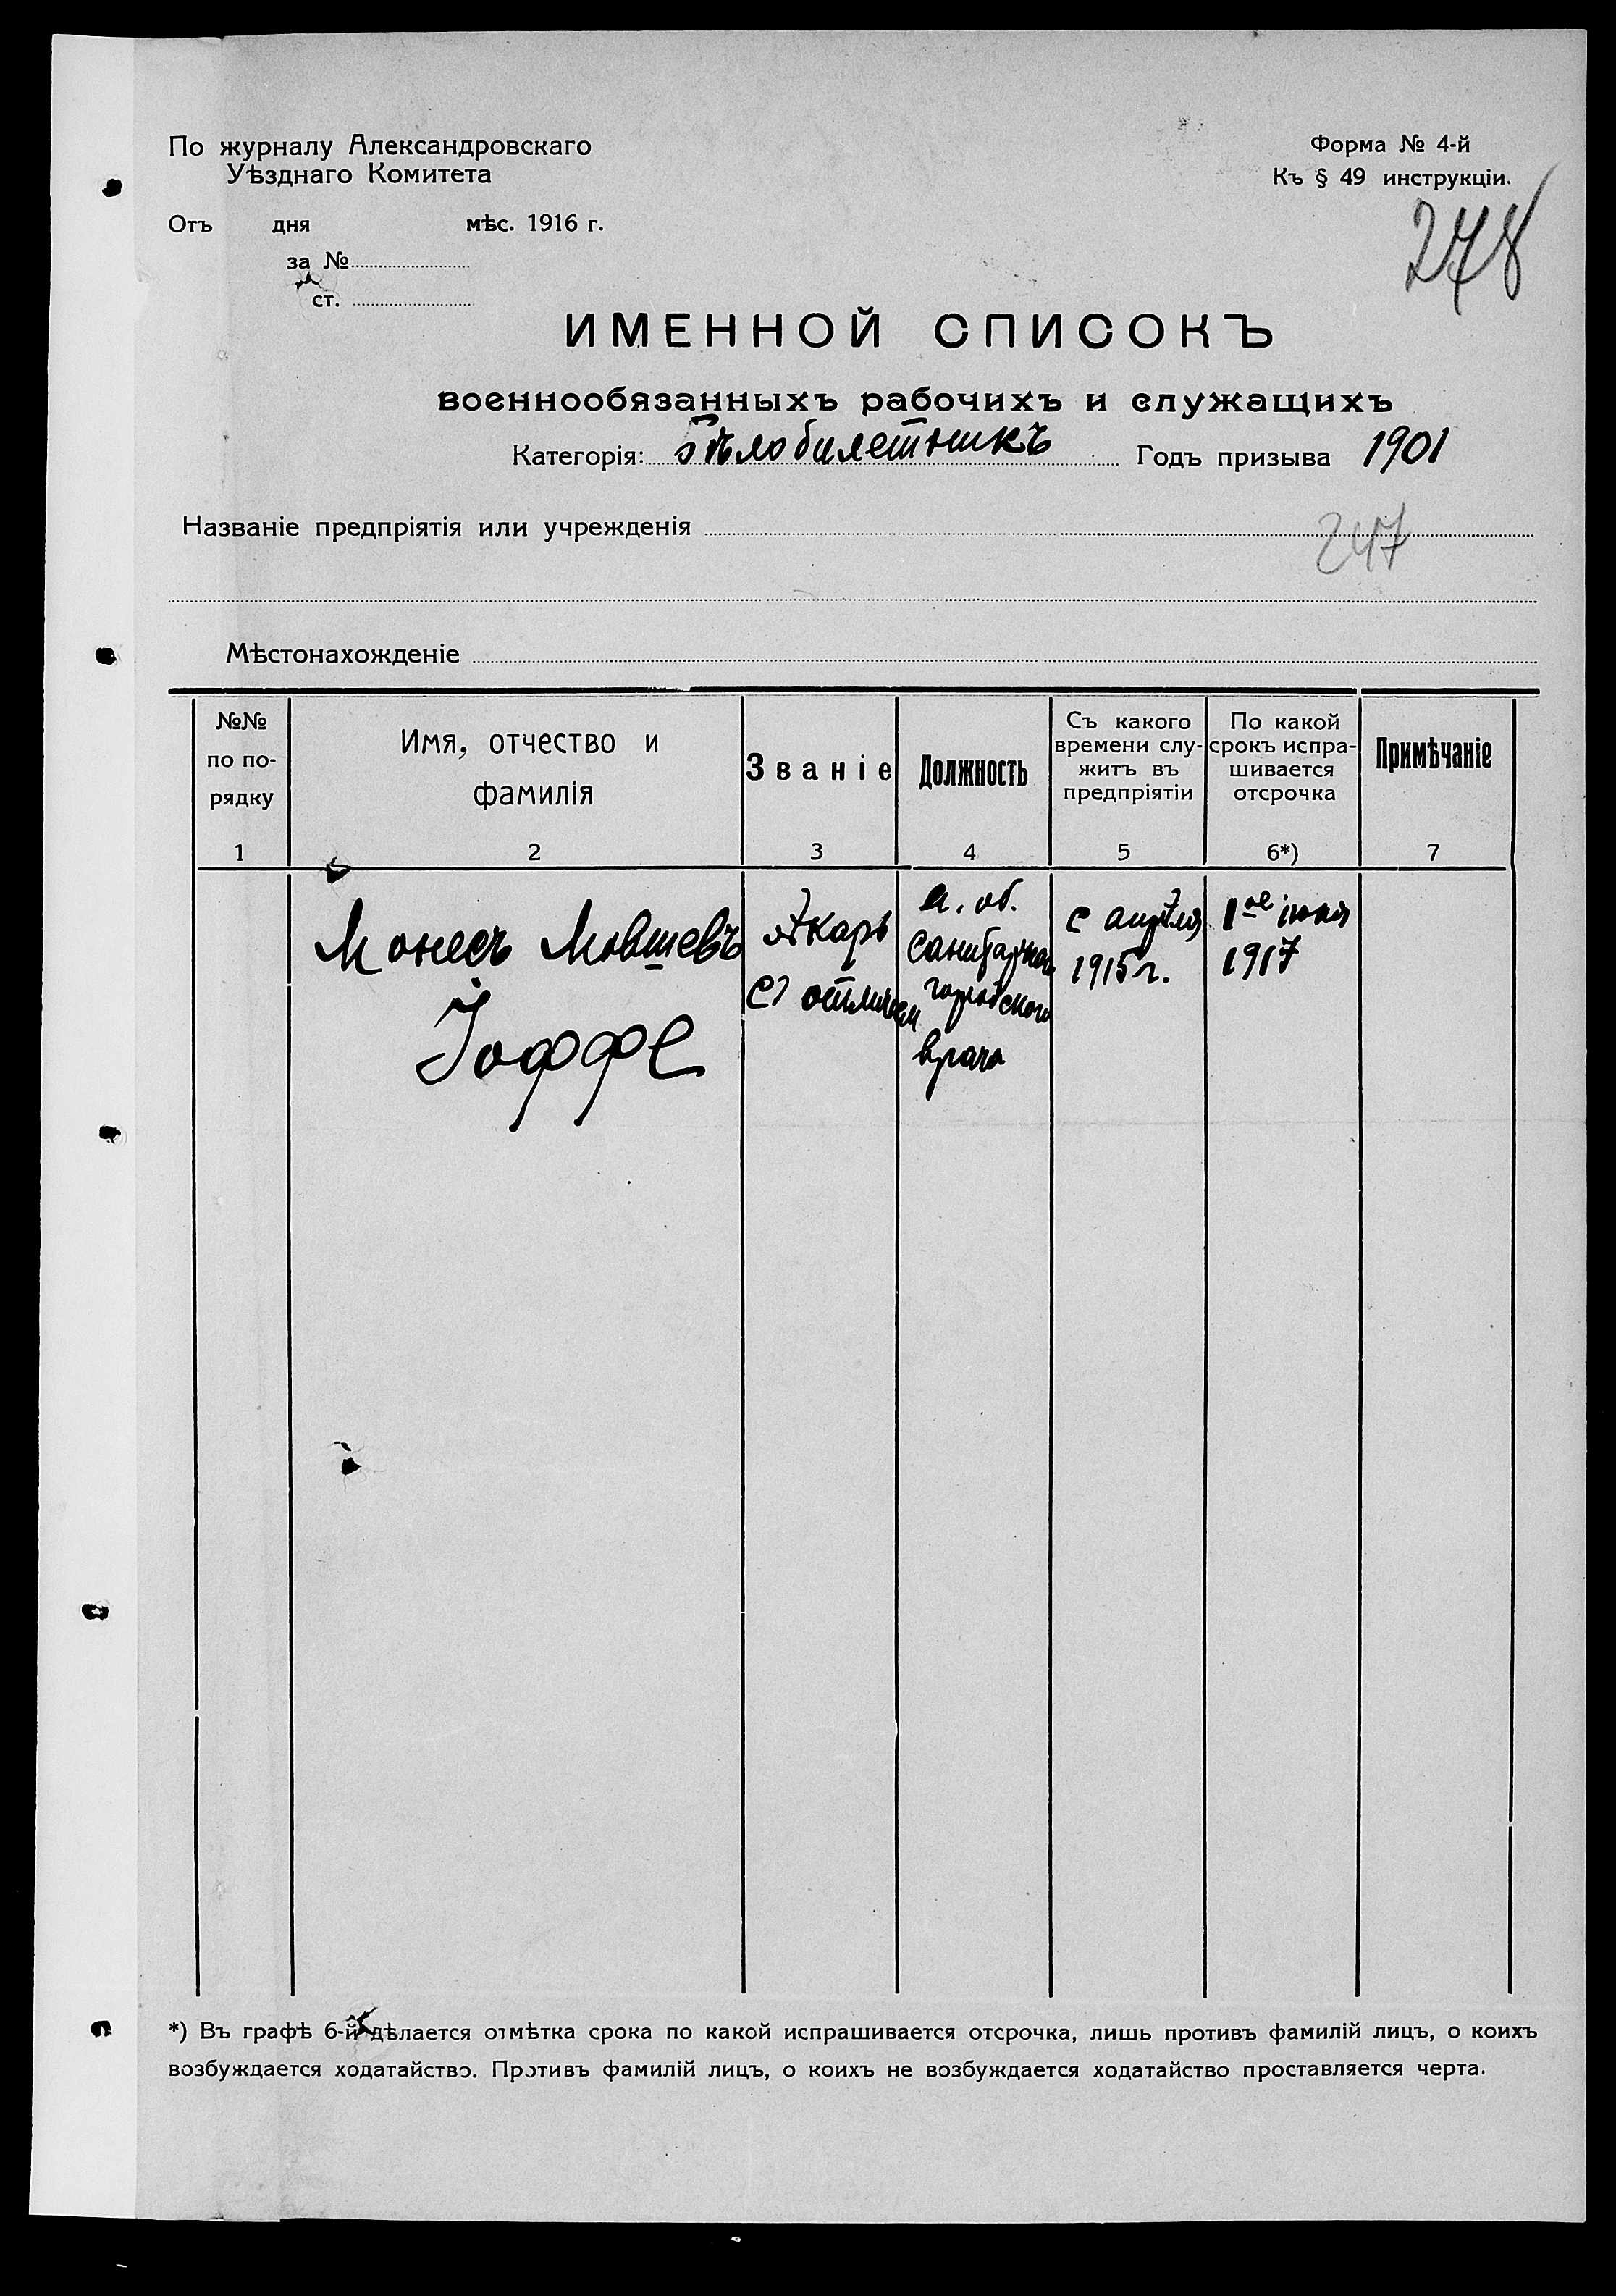 По журналу Александровскаго
Уѣзднаго Комитета
Отъ дня мѣс. 1916 г.
за №
ст.
Форма № 4-й
Къ § 49 инструкціи.
278
ИМЕННОЙ СПИСОКЪ
военнообязанныхъ рабочихъ и служащихъ
Категорія: бѣлобилетникъ Годъ призыва 1901
Названіе предпріятія или учрежденія
247
Мѣстонахожденіе
№№
по по-
рядку
1
Имя, отчество и
фамилія
2
Званіе
3
Должность
4
Съ какого
времени слу-
житъ въ
предпріятіи
5
По какой
срокъ испра-
шивается
отсрочка
6*)
Примѣчаніе
7
Монесъ Мовшевъ
Іоффе
лѣкарь
съ отличием
и. об.
санитарнаго
городского
врача
с апрѣля
1915 г.
1ое іюня
1917
*) Въ графѣ 6-й дѣлается отмѣтка срока по какой испрашивается отсрочка, лишь противъ фамилій лицъ, о коихъ
возбуждается ходатайство. Противъ фамилій лицъ, о коихъ не возбуждается ходатайство проставляется черта.